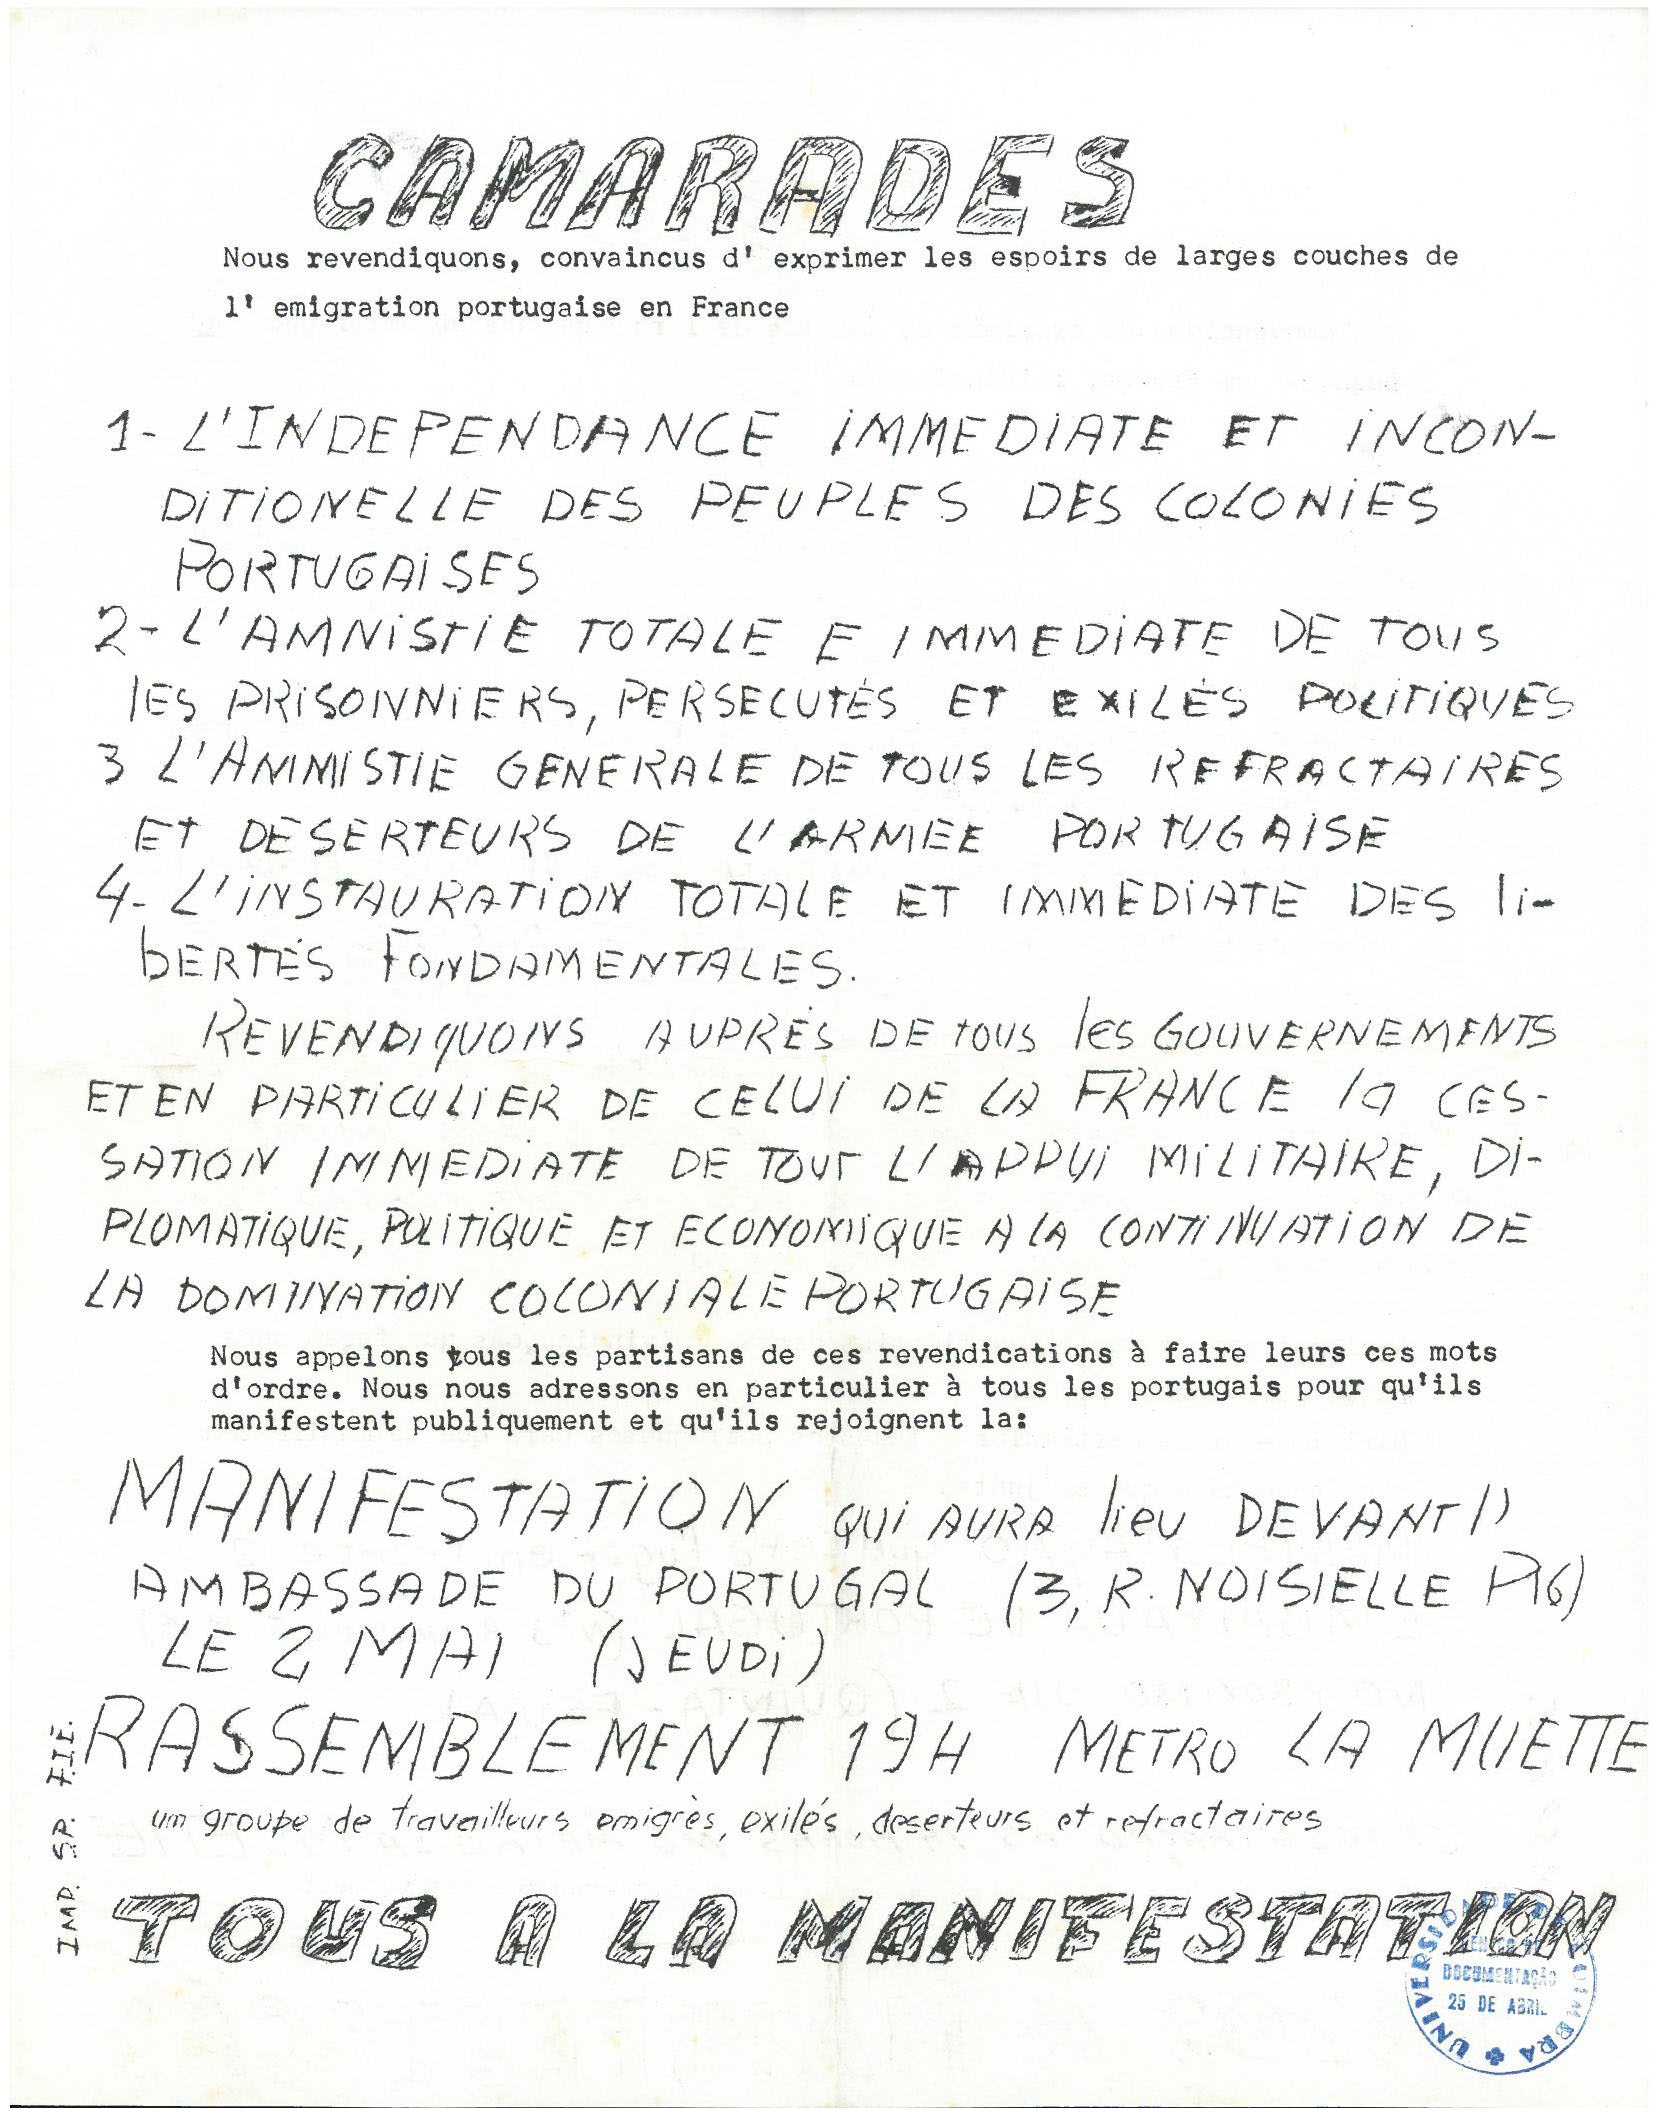 CAMARADES
Nous revendiquons, convaincus d' exprimer les espoirs de larges couches de
l' emigration portugaise en France
1- L'INDEPENDANCE IMMEDIATE ET INCON-
DITIONELLE DES PEUPLES DES COLONIES
PORTUGAISES
2- L'AMNISTIE TOTALE E IMMEDIATE DE TOUS
lES PRISONNIERS, PERSECUTÉS ET EXILÉS POLITIQUES
3 L'AMMISTIE GENERALE DE TOUS LES REFRACTAIRES
ET DESERTEURS DE L'ARMEE PORTUGAISE
4- L'INSTAURATION TOTALE ET IMMEDIATE DES li-
bERTÉS FONDAMENTALES.
REVENDIQUONS AUPRÉS DE tOUS lES GOUVERNEMENTS
ET EN PARTICULIER DE CELUI DE LA FRANCE la CES-
SATION IMMEDIATE DE TOUT L'APPUI MILITAIRE, DI-
PLOMATIQUE, POLITIQUE ET ECONOMIQUE A LA CONTINUATION DE
LA DOMINATION COLONIALE PORTUGAISE
Nous appelons tous les partisans de ces revendications à faire leurs ces mots
d'ordre. Nous nous adressons en particulier à tous les portugais pour qu'ils
manifestent publiquement et qu'ils rejoignent la:
MANIFESTATION QUI AURA lieu DEVANT l'
AMBASSADE DU PORTUGAL (3, R. NOISIELLE P16)
LE 2 MAI (JEUDI)
RASSEMBLEMENT 19H METRO LA MUETTE
um groupe de travailleurs emigrès, exilés, deserteurs et refractaires
IMP. SP. F.I.E.
TOUS A LA MANIFESTATION
UNIVERSIDADE DE COIMBRA
DOCUMENTAÇÃO
25 DE ABRIL